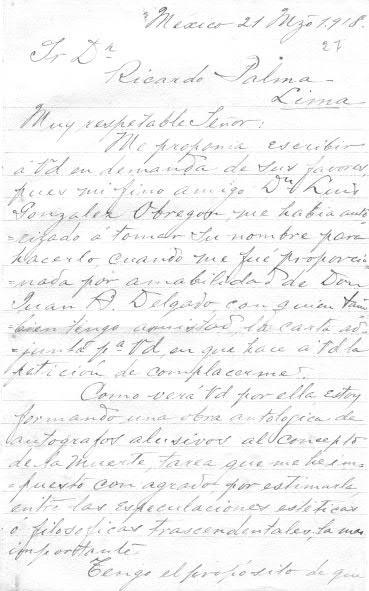 México 21 Mzo 1918.
27
Sr Dr
Ricardo Palma
Lima
Muy respetable Señor:
Me proponia escribir
á Vd en demanda de sus favores,
pues mi fino amigo Dn Luis
Gonzalez Obregon, me habia auto
=rizado á tomar su nombre para
hacerlo cuando me fué proporcio
=nada por amabilidad de Don
Juan B. Delgado con quien tam
=bien tengo amistad, la carta ad-
=junta pa Vd, en que hace á Vd la
peticion de complacerme.
Como verá Vd por ella estoy
formando una obra antologica de
autógrafos alusivos al concepto
de la Muerte, tarea que me he im-
puesto con agrado por estimarla,
entre las especulaciones estéticas
o filosoficas trascendentales, la mas
importante.
Tengo el propósito de que